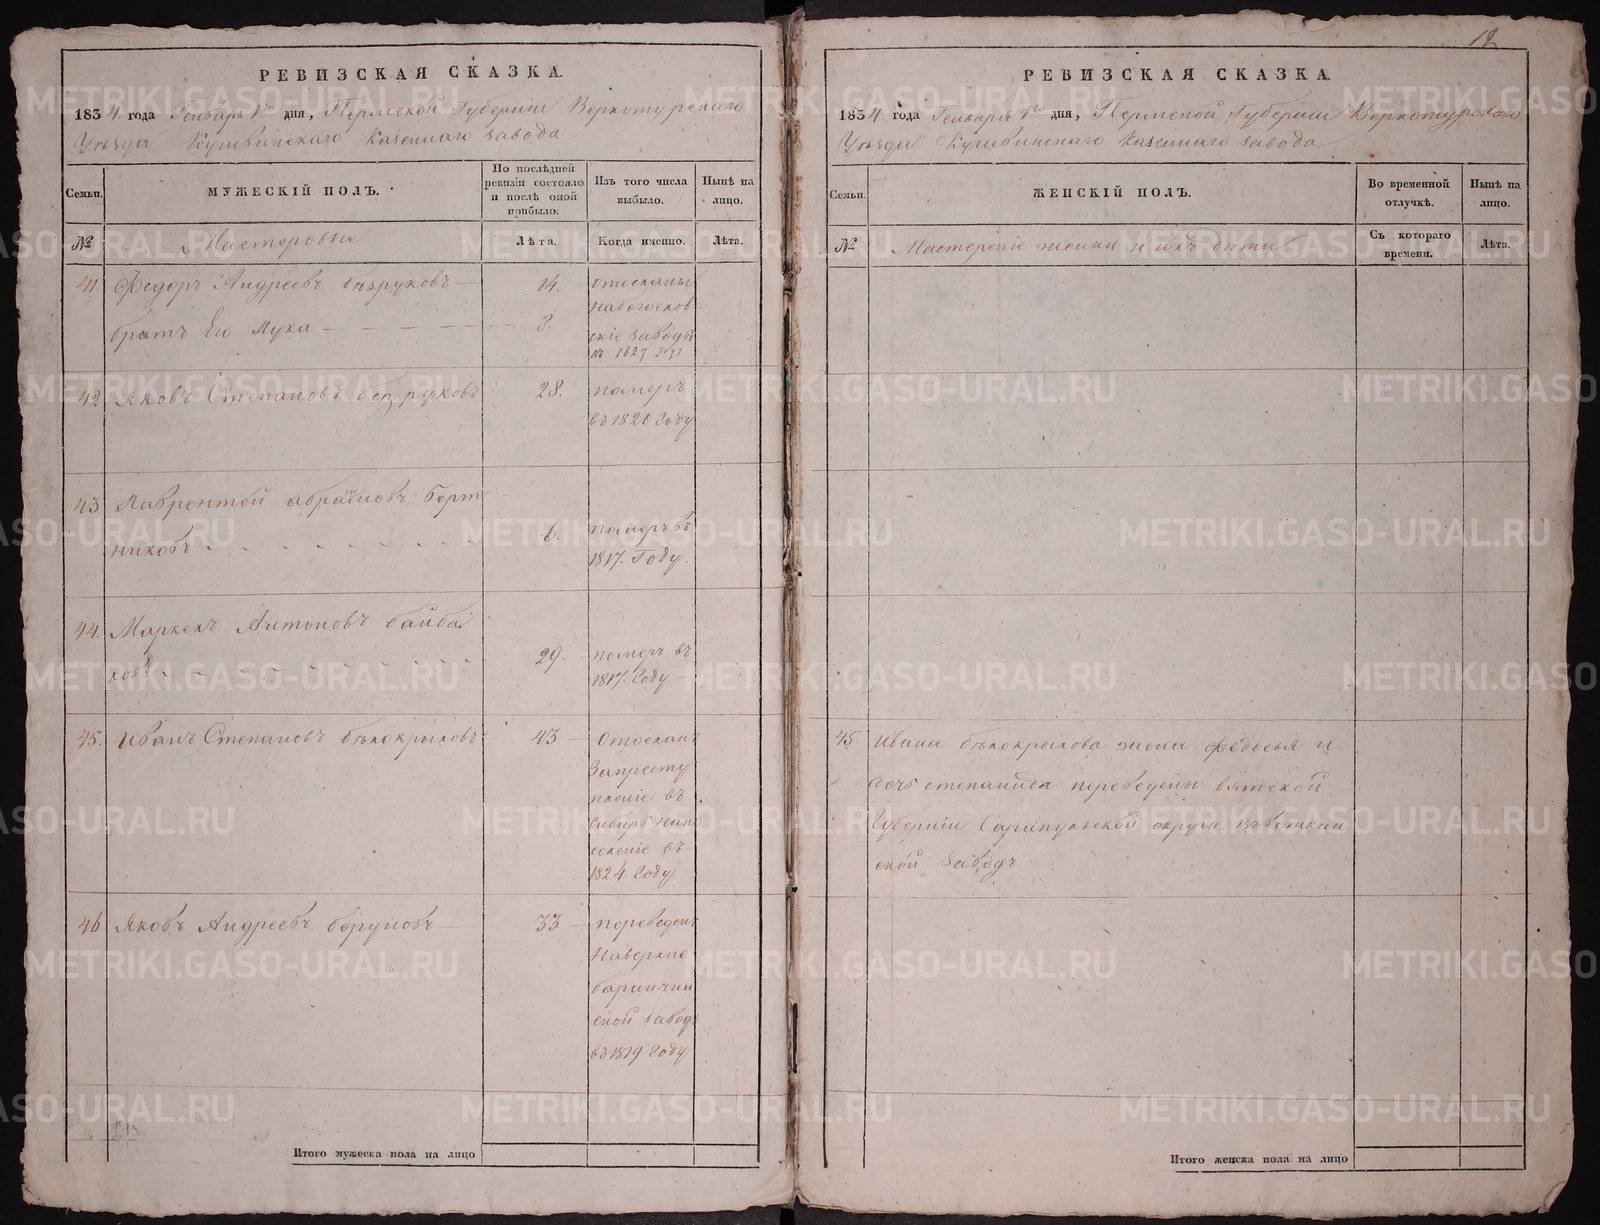 РЕВИЗСКАЯ СКАЗКА.
1834 года Генваря 1го дня, Пермской Губернии Верхотурскаго
Уезда Кушвинскаго казеннаго завода
Семьи.
МУЖЕСКІЙ ПОЛЪ.
По послѣдней ревизіи состояло и послѣ оной прибыло.
Изъ того числа выбыло.
Нынѣ на лицо.
№
Мастеровые
Лѣта.
Когда именно.
Лѣта.
41 Федоръ Андреевъ безруковъ 14. отосланы
братъ Его Лука 3. заводы
въ 1827
42 Яковъ Степановъ безруковъ 28. померъ
въ 1820 Году
43 Лаврентей абрамовъ Борт
никовъ 6. померъ въ
1817. Году.
44. Антоновъ байба
ковъ 29. померъ въ
1817. Году
45. Иванъ Степановъ бѣлокрыловъ 43 Отосланъ
Запресту
пленіе въ
Сибирь нап
селеніе въ
1824 Году
46 Яковъ Андреевъ 33 переведенъ
Наверхне
баранчин
ской заводъ
въ 1819 Году
Итого мужеска пола на лицо
12
РЕВИЗСКАЯ СКАЗКА.
1834 года Генваря 1го дня, Пермской Губерніи Верхотурскаго
Уезда Кушвинскаго казеннаго завода
Семьи.
ЖЕНСКІЙ ПОЛЪ.
Во временной отлучкѣ.
Нынѣ на лицо.
№
Мастерскіе женки и ихъ дѣти
Съ котораго времени.
Лѣта.
45 Ивана бѣлокрылова жена Федосья и
дочь степанида переведены вятской
Губерніи Сарапульской округи въ воткин
ской заводъ
Итого женска пола на лицо
METRIKI.GASO-URAL.RU